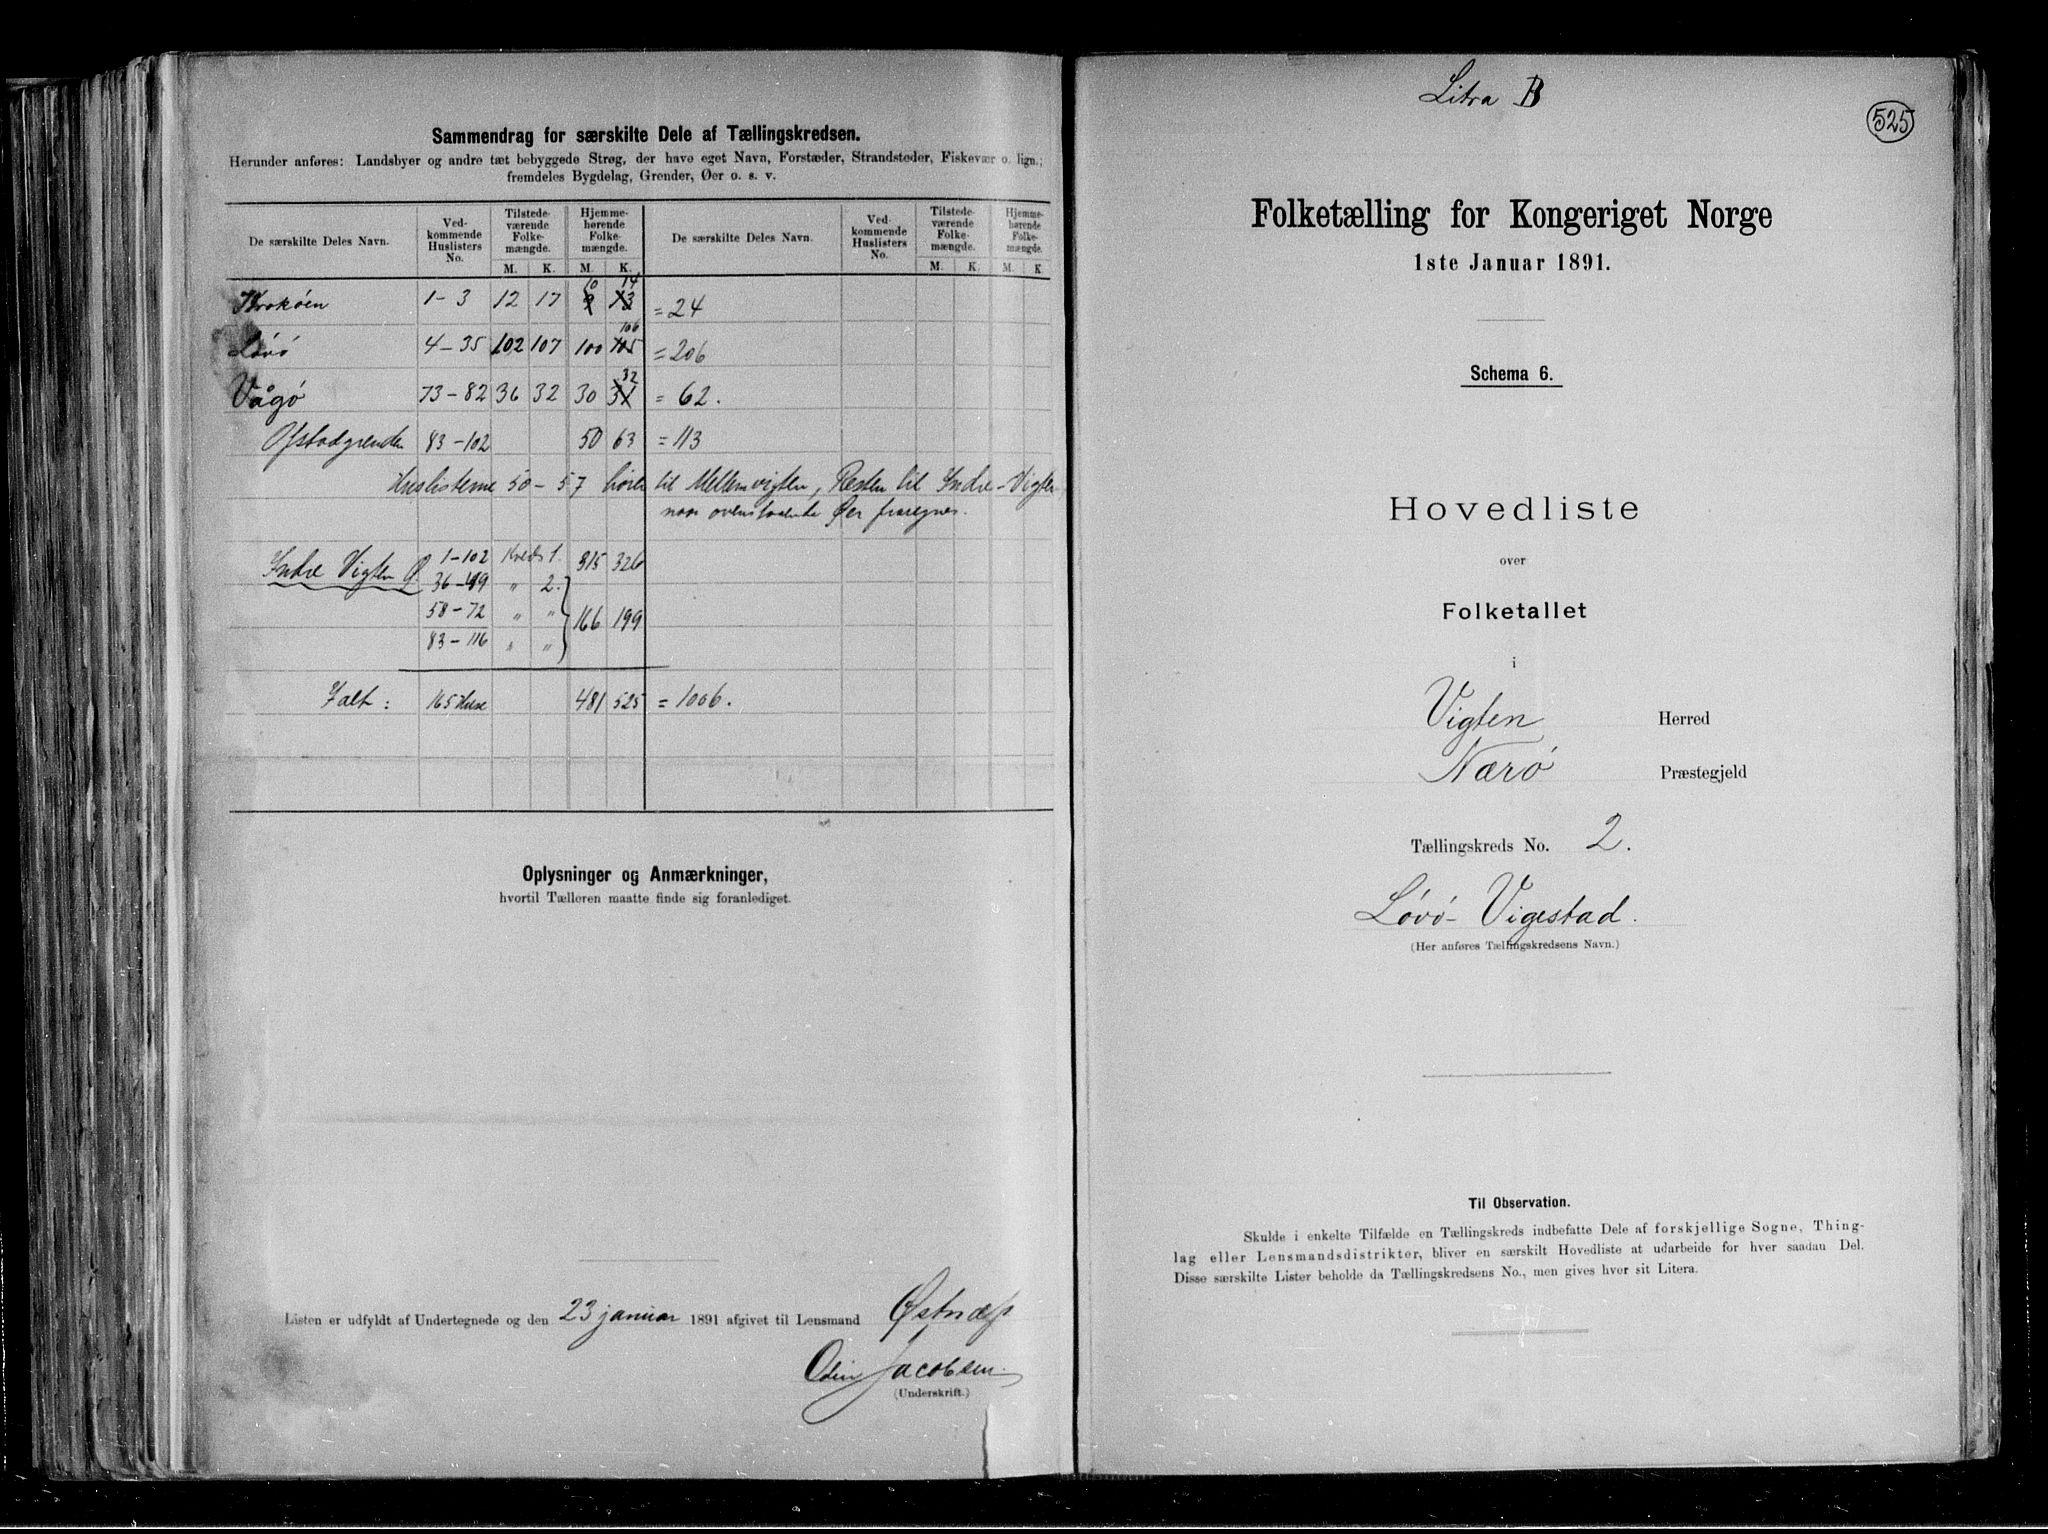 Sammendrag for særskilte Dele af Tællingskredsen.
Herunder anføres: Landsbyer og andre tæt bebyggede Strøg, der have eget Navn, Forstæder, Strandsteder, Fiskevær o. lign.;
fremdeles Bygdelag, Grender, Øer o. s. v.
De særskilte Deles Navn. Ved-kommende Huslisters No. Tilstede-værende Folke-mængde. Hjemme-hørende Folke-mængde. De særskilte Deles Navn. Ved-kommende Huslisters No. Tilstede-værende Folke-mængde. Hjemme-hørende Folke-mængde.
M. K. M. K. M. K. M. K.
10 14
Krokøen 1-3 12 17 9 13 = 24
106
Løvø 4-35 102 107 100 105 = 206
32
Vågø 73-82 36 32 30 31 = 62.
Ofstadgrenden 83-102 50 63 = 113
Huslisterne 50-57 hører til Mellemvigten, Resten til Indre-Vigten
naar ovenstaaende Øer fraregnes.
Indre Vigten Ø. 1-102 Kreds 1. 315 326
36-49 " 2.
58-72 " " 166 199
83-116 " "
Ialt: 165 Huse 481 525 = 1006.
Oplysninger og Anmærkninger,
hvortil Tælleren maatte finde sig foranlediget.
Listen er udfyldt af Undertegnede og den 23 januar 1891 afgivet til Lensmand
Odin Jacobsen
(Underskrift.)
Litra B
525
Folketælling for Kongeriget Norge
1ste Januar 1891.
Schema 6.
Hovedliste
over
Folketallet
i
Vigten Herred
Nærø Præstegjeld
Tællingskreds No. 2.
Løvø-Vigestad.
(Her anføres Tællingskredsens Navn.)
Til Observation.
Skulde i enkelte Tilfælde en Tællingskreds indbefatte Dele af forskjellige Sogne, Thing-
lag eller Lensmandsdistrikter, bliver en særskilt Hovedliste at udarbeide for hver saadan Del.
Disse særskilte Lister beholde da Tællingskredsens No., men gives hver sit Litera.